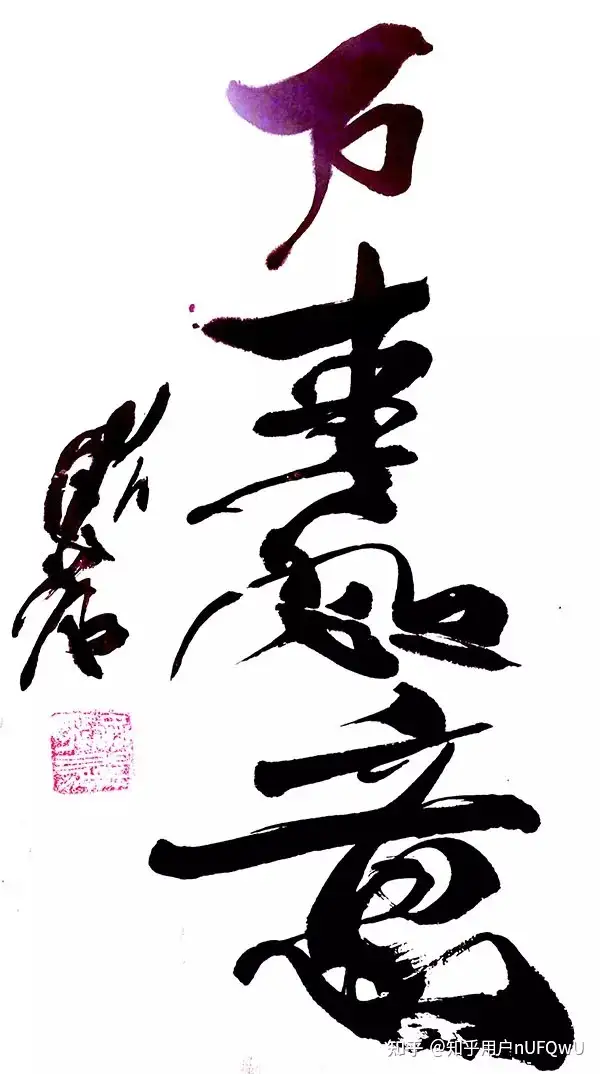 万事如意
知乎 @知乎用户nUFQwU